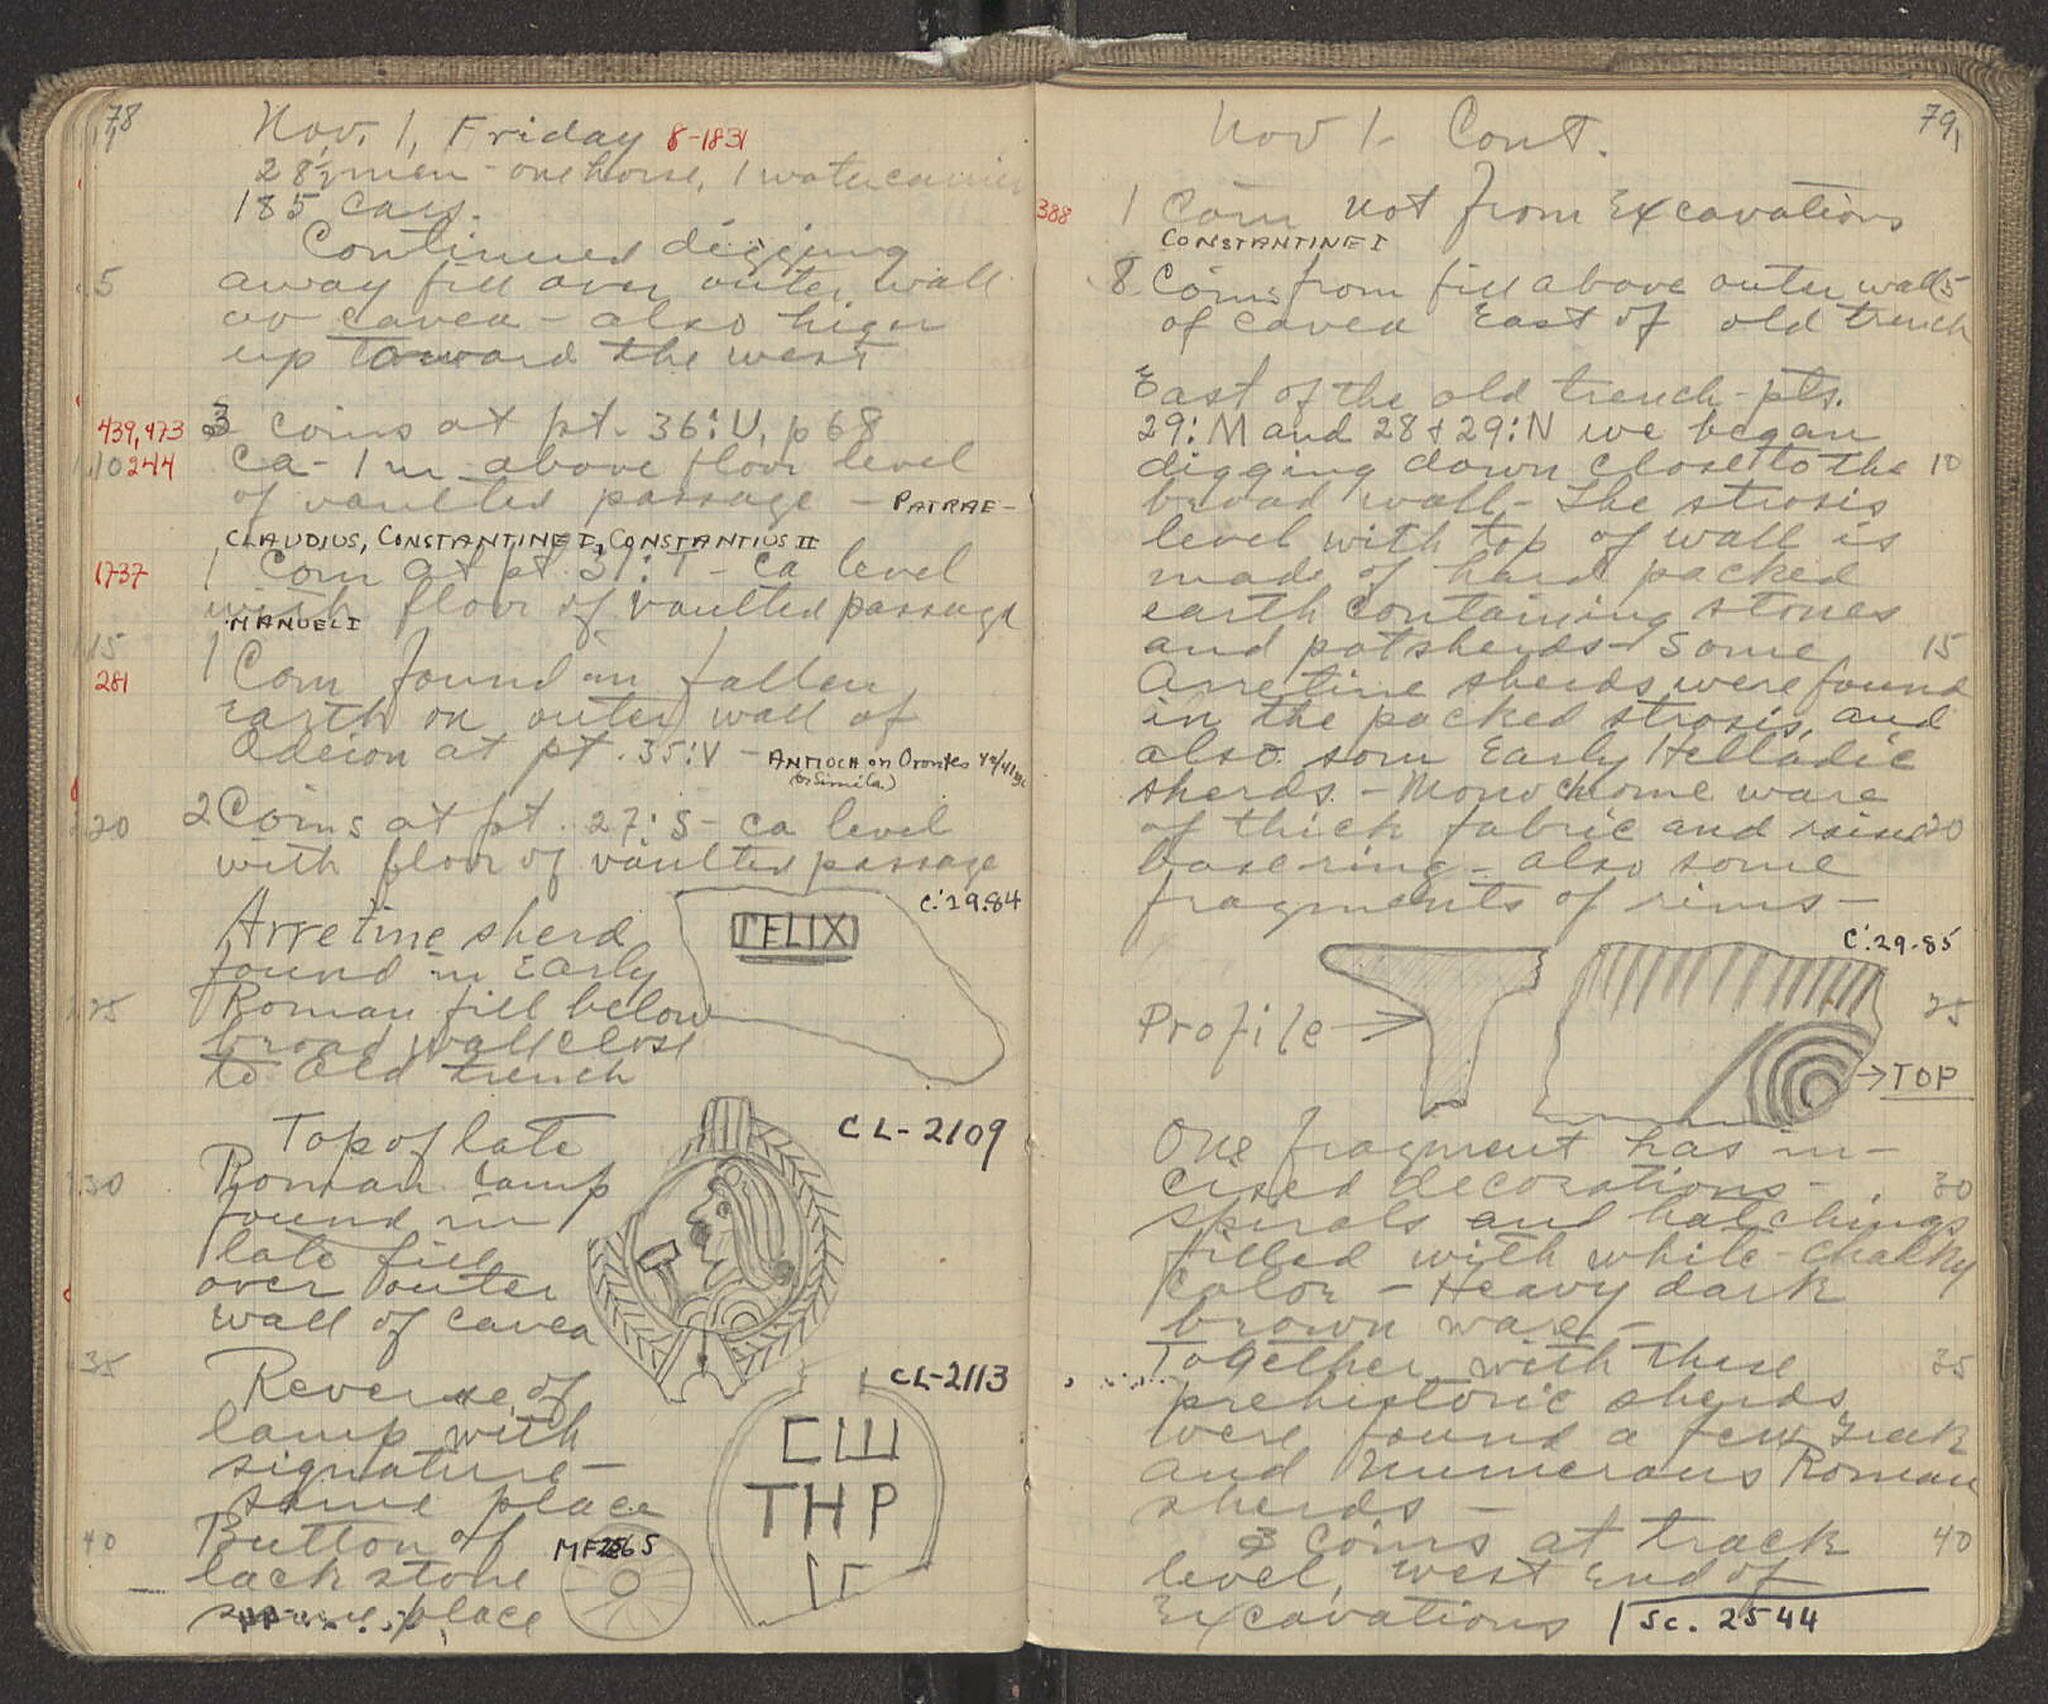 78
Nov. 1, Friday 8-1831
28½ men - one horse, 1 water carrier
185 cars.
Continued digging
5 away fill over outer wall
of cavea - also higer
up toward the west
439,473 3 coins at pt. 36:U, p 68
10 244 Ca - 1 m above floor level
of vaulted passage - PATRAE-
CLAUDIUS, CONSTANTINE I, CONSTANTIUS II
1737 1 Coin at pt. 37:T - Ca level
with floor of vaulted passage
MANUEL I
15 1 Coin found in fallen
281 earth on outer wall of
Odeion at pt. 35:V - ANTIOCH on Orontes
(or Similar)
20 2 Coins at pt. 27:S - ca level
with floor of vaulted passage
C.29.84
FELIX
Arretine sherd
found in Early
25 Roman fill below
broad wall close
to Old trench
CL-2109
Top of late
30 Roman Lamp
found in
late fill
over outer
wall of cavea
35 CL-2113
Reverse of
lamp with
signature -
same place
CШ
THP
ΙΓ
40 Button of
lack stone
same place
MF 2565
79
Nov 1. Cont.
388 1 Coin not from Excavations
CONSTANTINE I
8 Coins from fill above outer walls
of cavea East of old trench
East of the old trench - pts.
29:M and 28 + 29:N we began
digging down close to the 10
broad wall - The strosis
level with top of wall is
made of hard packed
earth containing stones
and potsherds - Some 15
Arretine sherds were found
in the packed strosis, and
also som Early Helladic
sherds. - Monochrome ware
of thick fabric and raised 20
base ring - also some
fragments of rims -
C.29-85
Profile → 25
→ TOP
One fragment has in-
cised decorations - 30
spirals and hatchings
filled with white - chalky
color - Heavy dark
brown ware -
Together with these 35
prehistoric sherds
were found a few Greek
and numerous Roman
sherds -
3 Coins at track 40
level, West End of
Excavations Sc. 2544